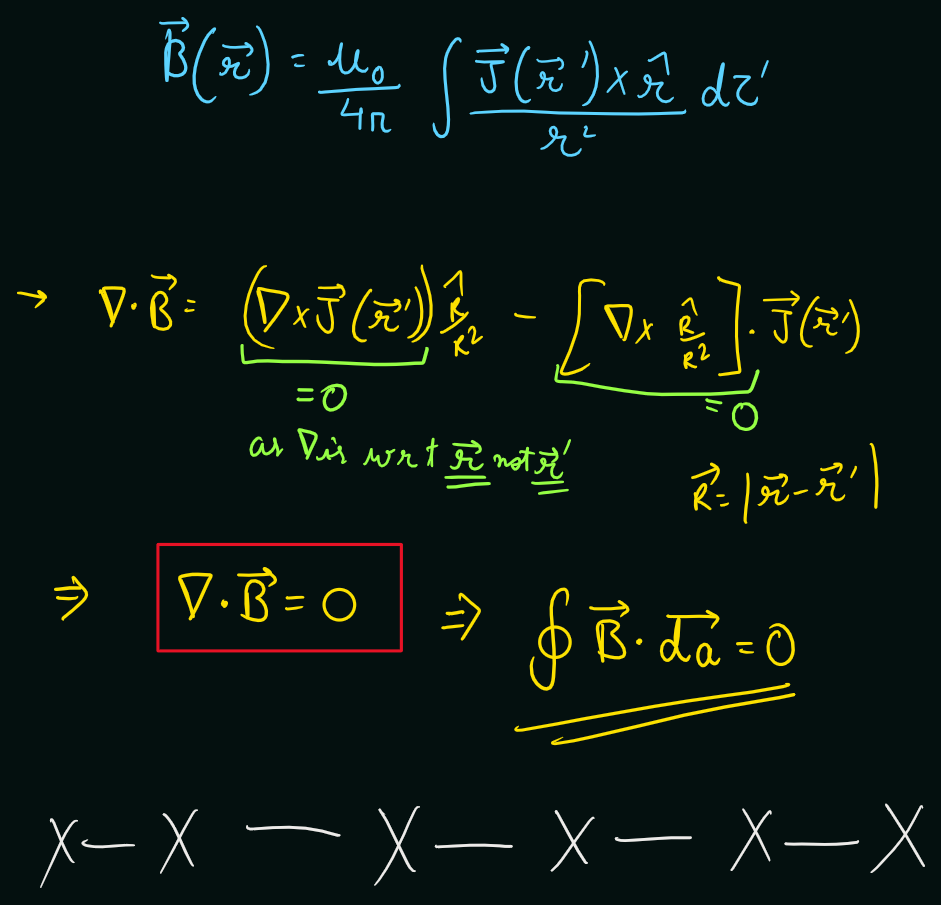 B⃗(r⃗) = μ₀/4π ∫ J⃗(r⃗') × r̂ / r² dτ'
→ ∇·B⃗ = (∇×J⃗(r⃗')) R̂/R² − [∇× R̂/R²]·J⃗(r⃗')
= 0
= 0
as ∇ is wrt r⃗ not r⃗'
R⃗ = |r⃗ − r⃗'|
⇒ ∇·B⃗ = 0 ⇒ ∮ B⃗·da⃗ = 0
X — X — X — X — X — X